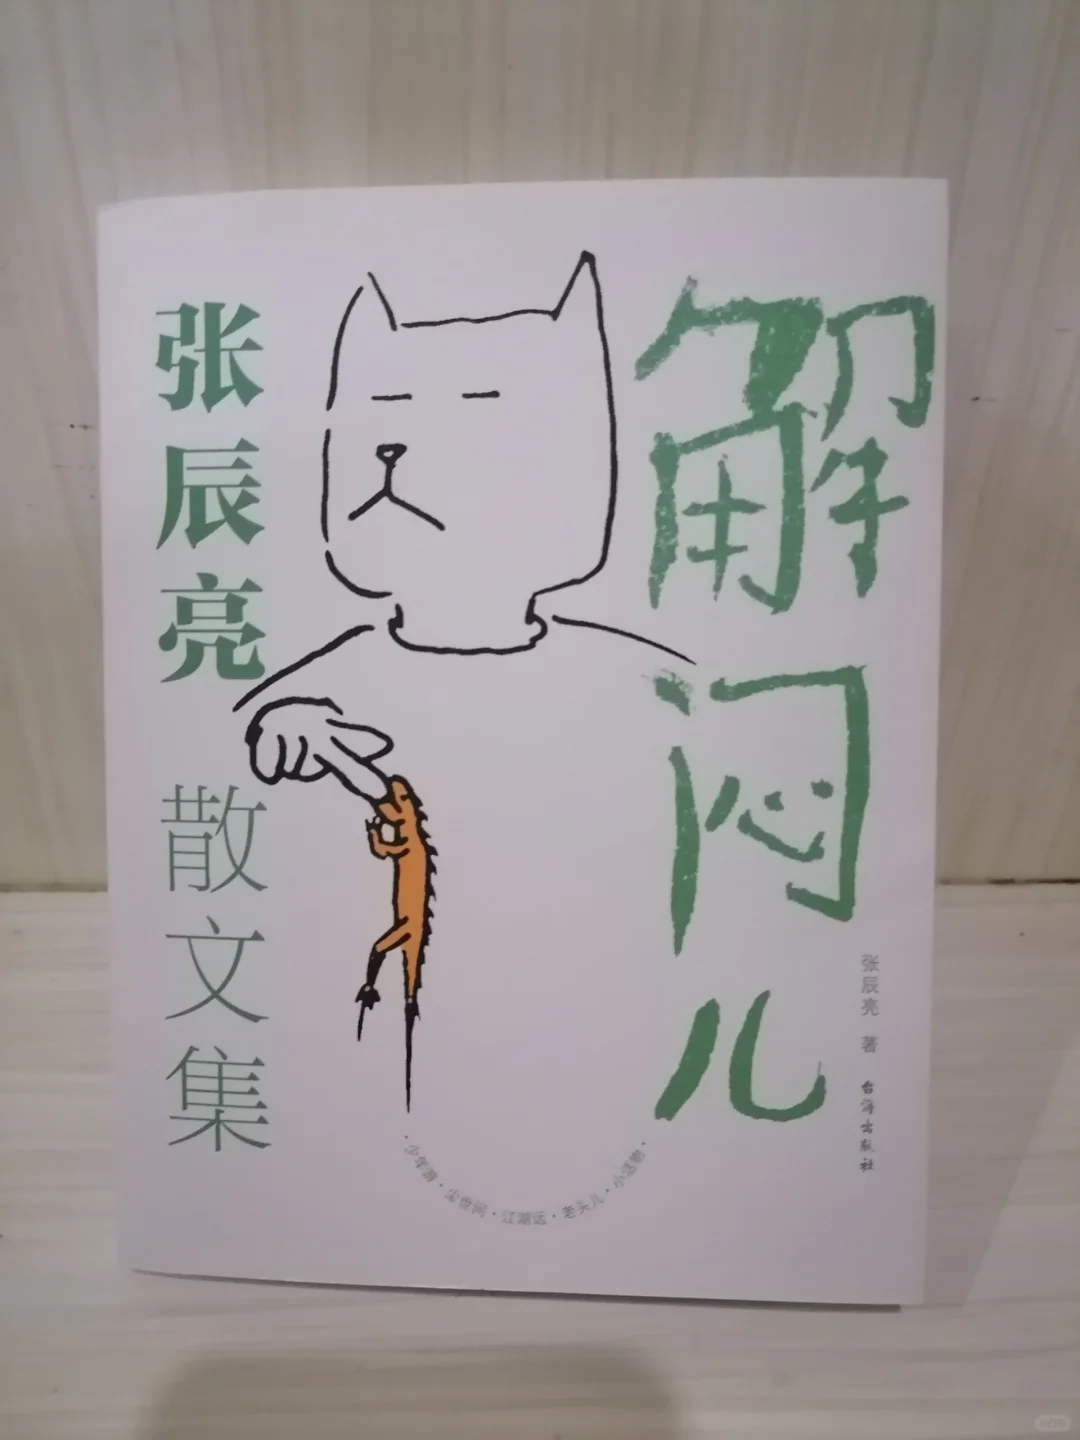 解闷儿
张辰亮 著
台海出版社
张辰亮
散文集
·少年游·尘世间·江湖远·老头儿·小活物·